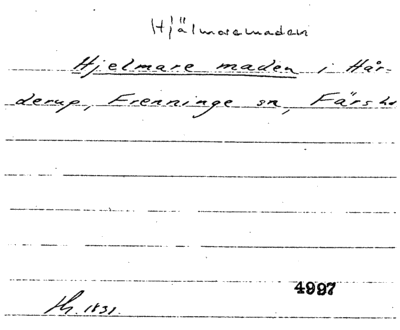 Hjälmaremaden
Hjelmare maden i Hår-
derup, Frenninge sn, Färs hd
4997
1831.